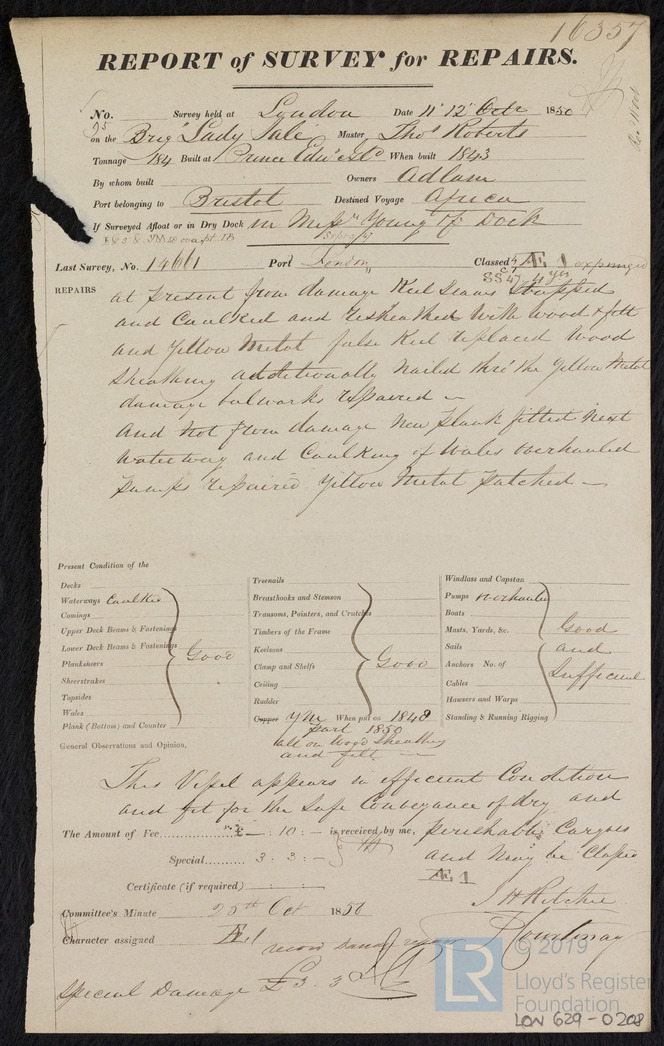 16357
REPORT of SURVEY for REPAIRS.
No. Survey held at London Date 11" 12" Octr 1850
on the Brig "Lady Sale" Master, Thos Roberts
Tonnage 184 Built at Prince Edwd Isld When built 1843
By whom built Owners Adlam
Port belonging to Bristol Destined Voyage Africa
If Surveyed Afloat or in Dry Dock in Messrs Young & Co Dock
Last Survey, No. 14661 Port London Classed Æ 1 expunged
SS 47. 4 yrs
REPAIRS at present from damage Keel Seams Stripped
and Caulked and resheathed with Wood & felt
and Yellow Metal false Keel replaced Wood
Sheathing additionally nailed thro' the Yellow Metal
damage bulwarks repaired —
And not from damage New plank fitted next
waterway and Caulking of Wales overhauled
pumps repaired Yellow Metal patched —
Present Condition of the
Decks
Waterways Caulked
Comings
Upper Deck Beams & Fastenings
Lower Deck Beams & Fastenings
Planksheers
Sheerstrakes
Topsides
Wales
Plank (Bottom) and Counter
Good
Treenails
Breasthooks and Stemson
Transoms, Pointers, and Crutches
Timbers of the Frame
Keelsons
Clamp and Shelfs
Ceiling
Rudder
Good
Copper YM When put on 1848
part 1850
all on Wood Sheathing
and felt —
Windlass and Capstan
Pumps overhauled
Boats
Masts, Yards, &c.
Sails
Anchors No. of
Cables
Hawsers and Warps
Standing & Running Rigging
Good
and
Sufficient
General Observations and Opinion,
This Vessel appears in efficient Condition
and fit for the Safe Conveyance of dry and
The Amount of Fee £ — : 10 : — is received by me, perishable Cargoes
Special 3 : 3 : — and May be Classed
Certificate (if required) Æ 1
J H Ritchie
Committee's Minute 25th Oct 1850
Character assigned Æ 1
Courtenay
Special Damage £3. 3
© 2019
LR
Lloyd's Register
Foundation
LON 629-0208